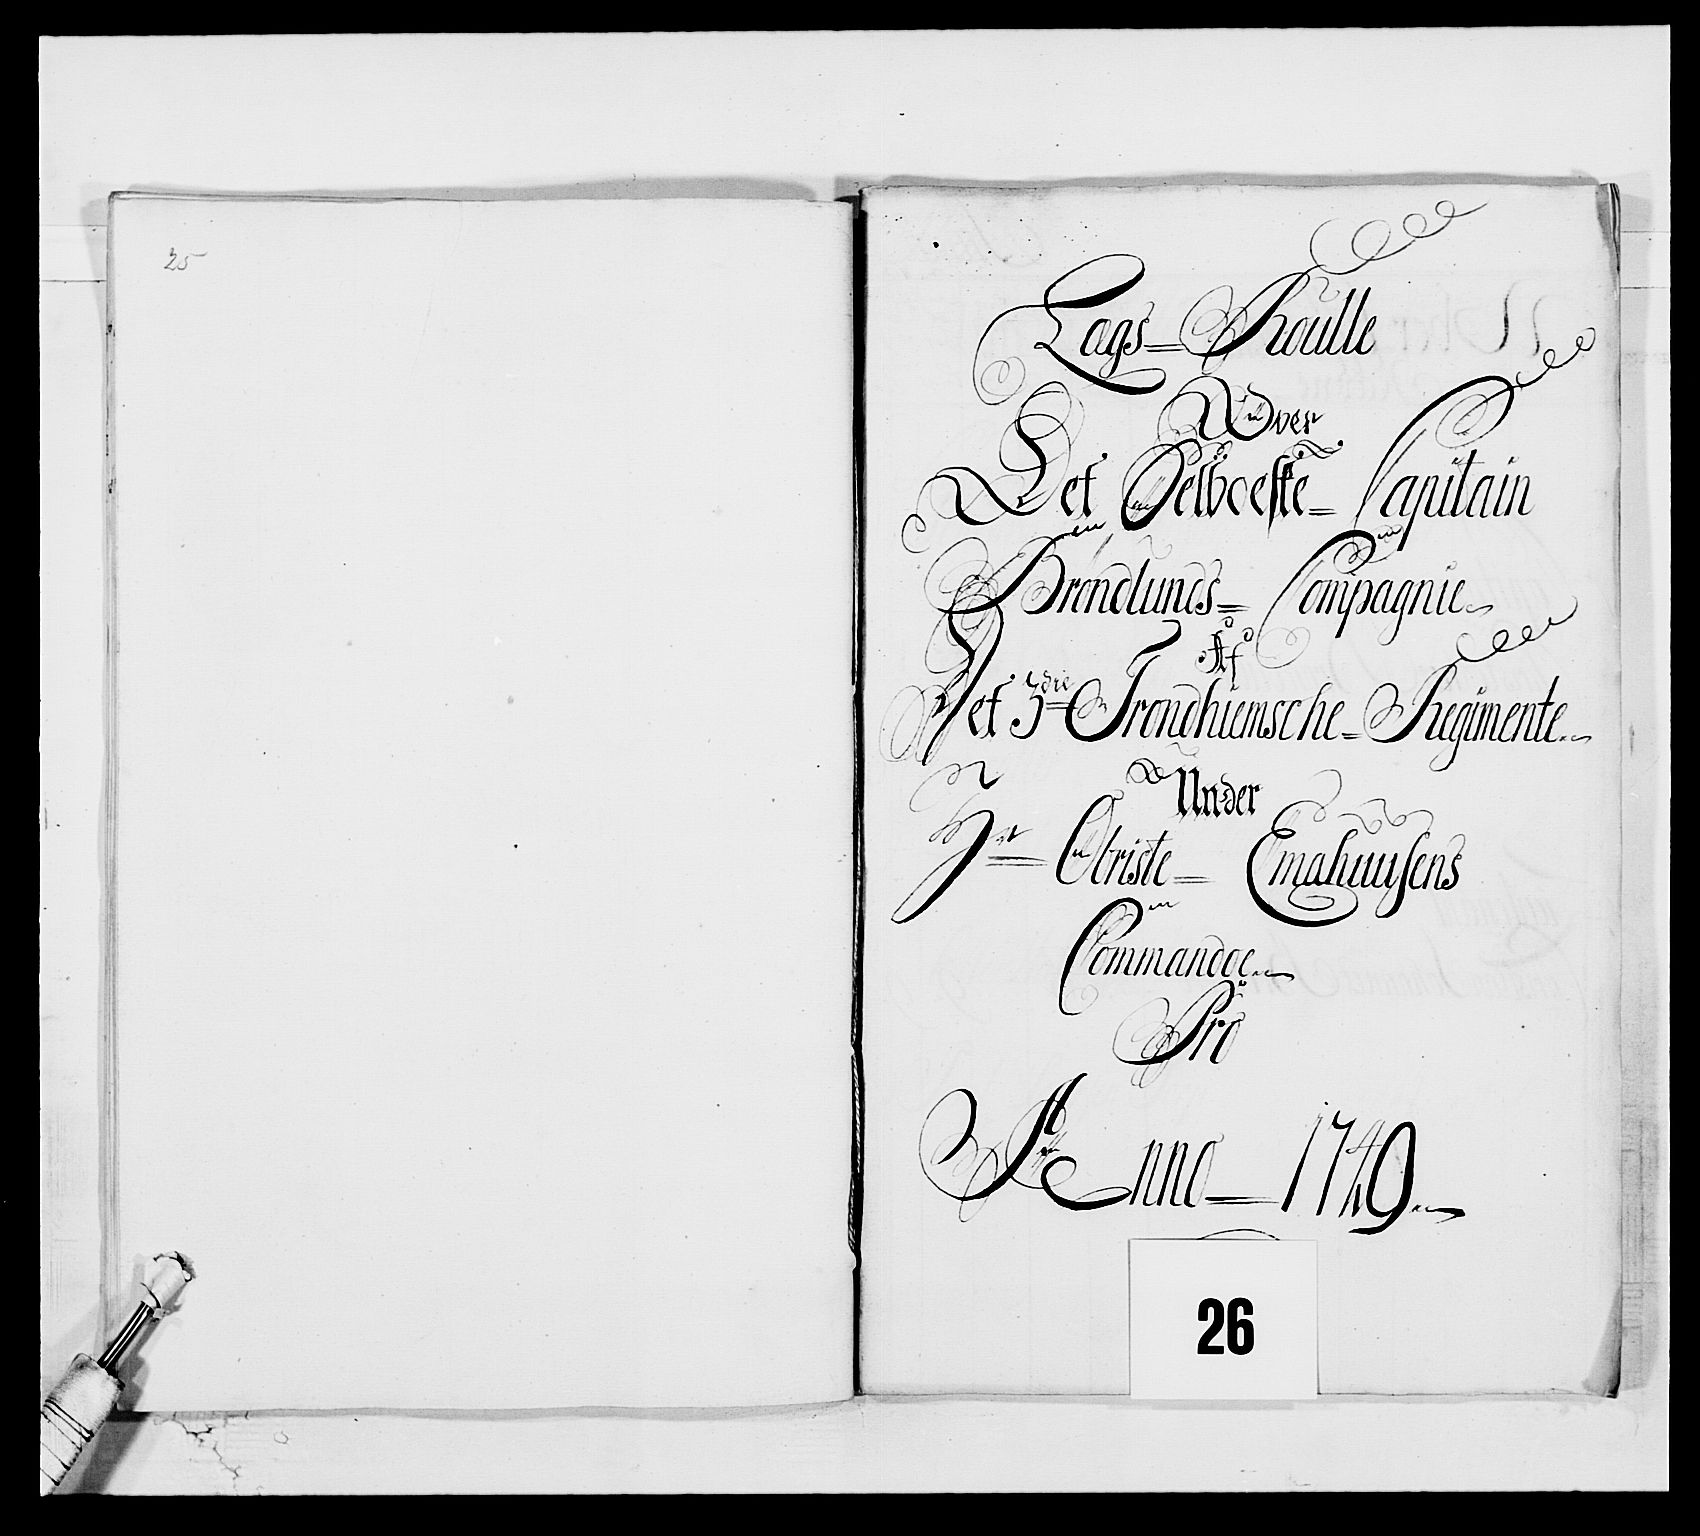 25
Lags=Roulle
Over
Det Selboeske= Capitain
Brøndlunds= Compagnie
Af
Det 3die Trondhiemsche= Regimente
Under
Hr Obriste= Emahuusens
Commandoe
Pro
Anno= 1749
26